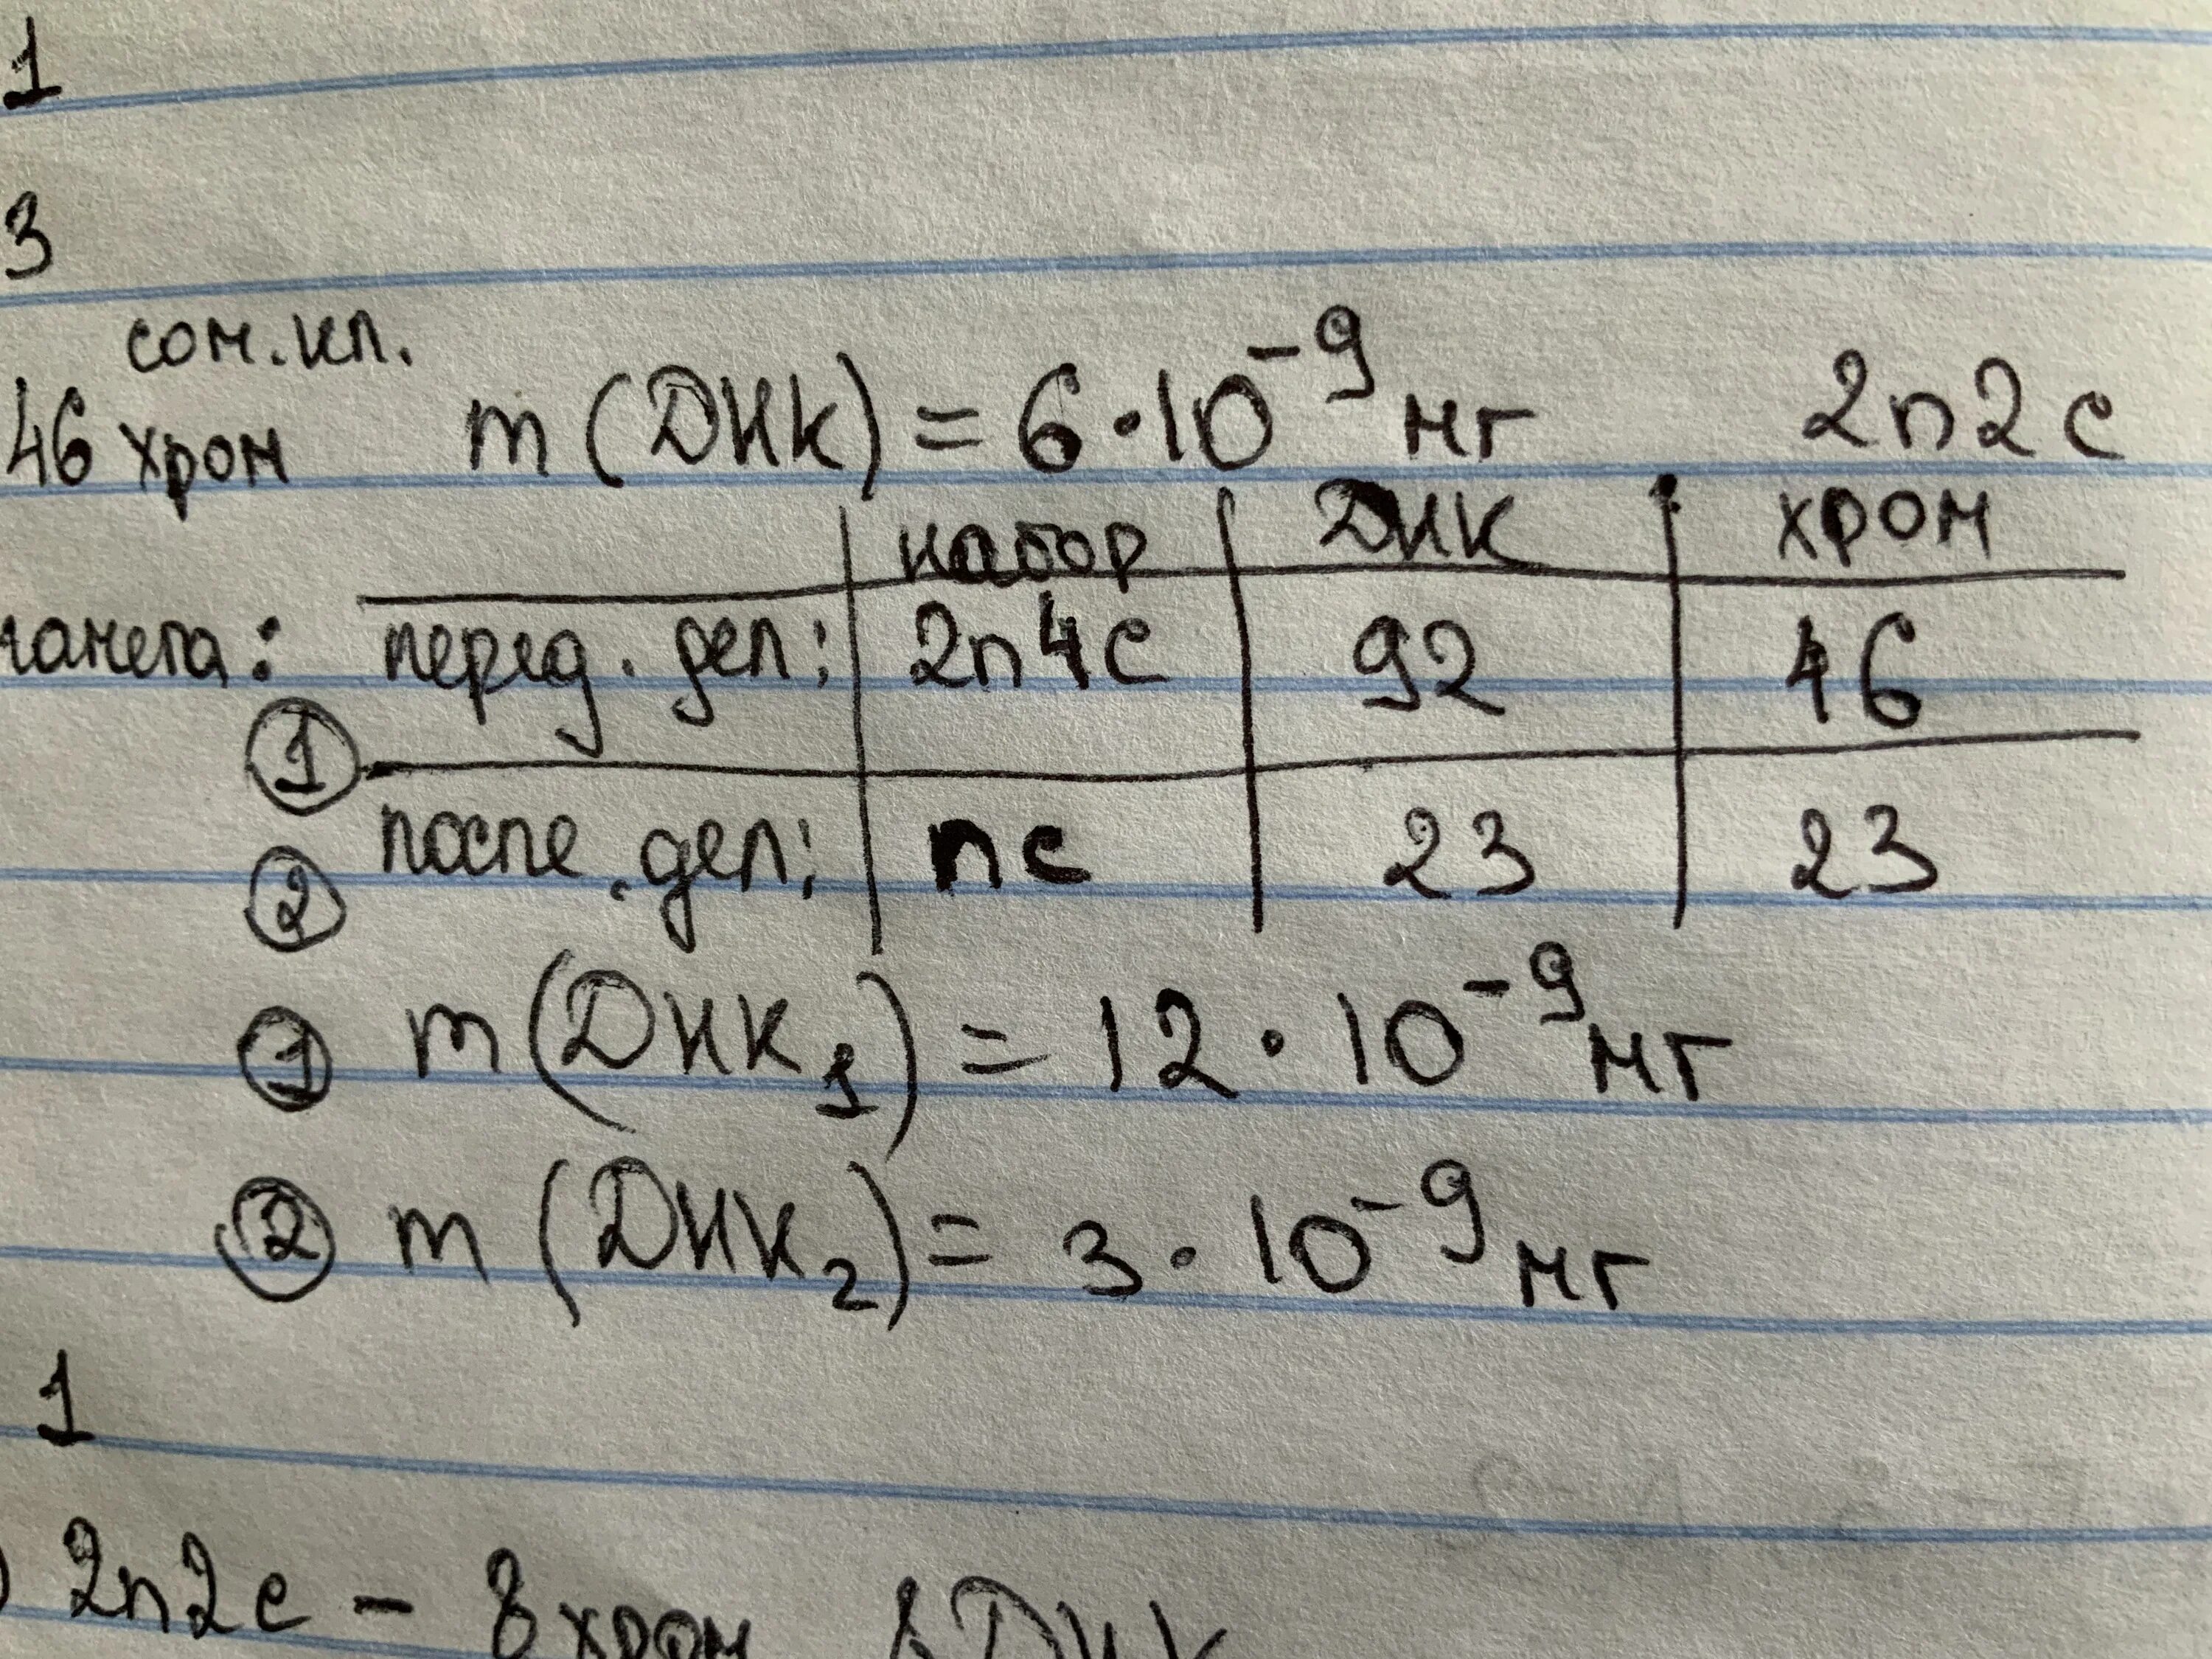 1
3
сом.кл.
46 хром m (ДНК) = 6·10⁻⁹ мг 2n2c
набор ДНК хром
гамета: перед. дел: 2n4c 92 46
①
после.дел: nc 23 23
②
① m(ДНК₁) = 12·10⁻⁹ мг
② m(ДНК₂) = 3·10⁻⁹ мг
1
) 2n2c - 8 хром 8 ДНК